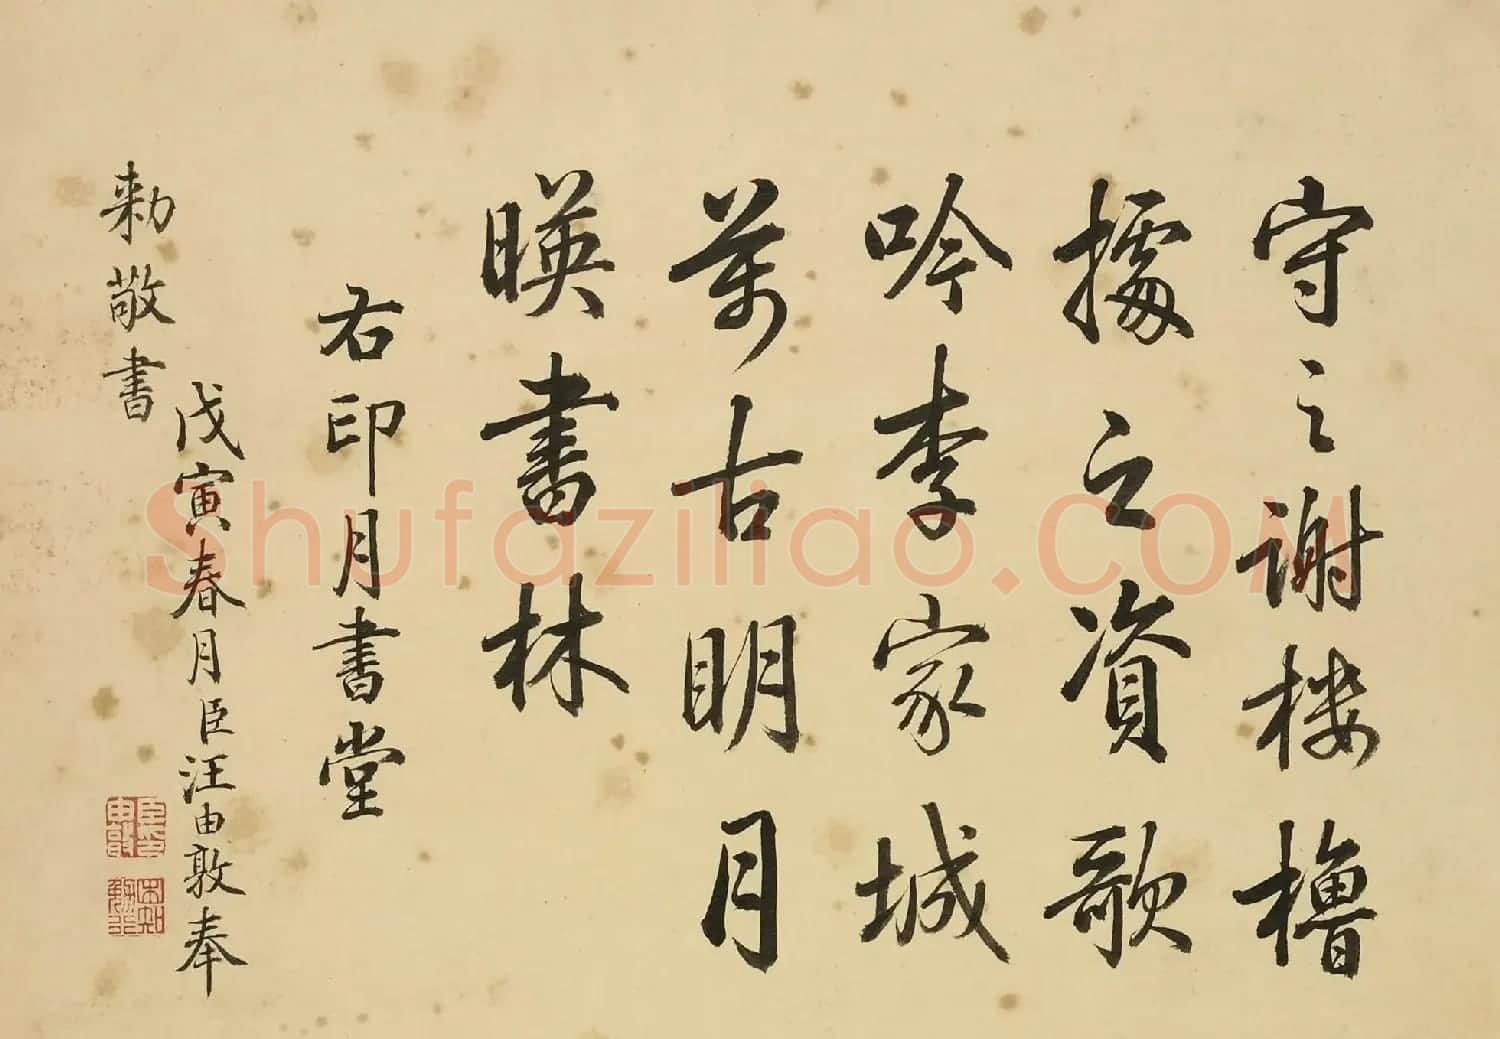 守之謝楼櫓
據之資歌
吟李家城
萬古明月
暎書林
右印月書堂
戊寅春月臣汪由敦奉
勅敬書
Shufaziliao.COM